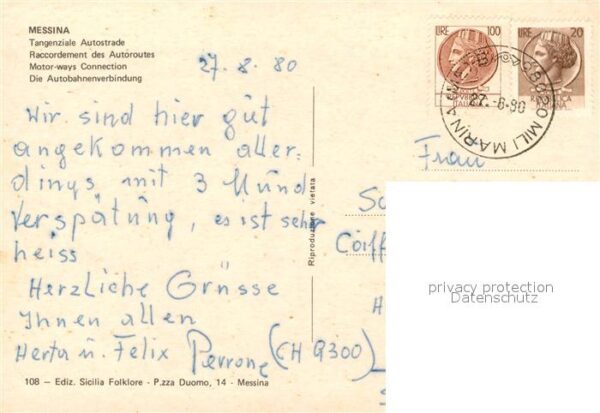 MESSINA
Tangenziale Autostrade
Raccordement des Autoroutes
Motor-ways Connection
Die Autobahnenverbindung
27. 8. 80
LIRE 100
LIRE 20
27.-8-80
Wir sind hier gut
angekommen aller-
dings mit 3 Stund
Verspätung, es ist sehr
heiss
Herzliche Grüsse
Ihnen allen
Herta u. Felix Perrone (CH 9300)
Frau
Coiff
H
Riproduzione vietata
privacy protection
Datenschutz
108 — Ediz. Sicilia Folklore - P.zza Duomo, 14 - Messina